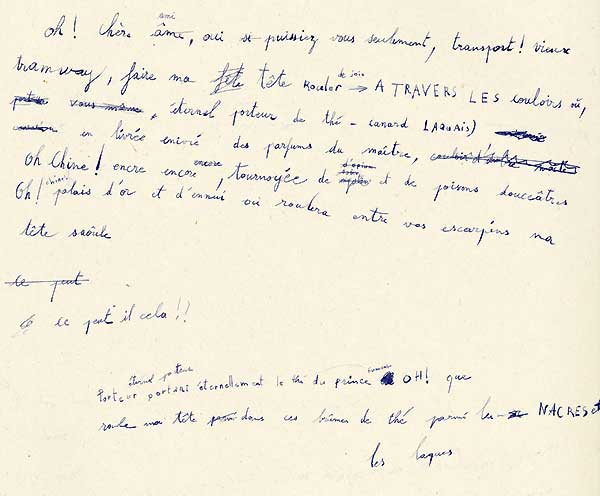 ami
oh! Chère âme, oui si puissiez vous seulement, transport! vieux
tramway, faire ma fête tête Rouler de joie → A TRAVERS LES couloirs où,
vous même, éternel porteur de thé - canard LAQUAIS)
en livrée enivré des parfums du maître,
Oh Chine! encre encore encore, tournoyée de d'opium et de poisons douceâtres
Oh! chinois palais d'or et d'ennui où roulera entre vos escarpins ma
tête saoûle
ce peut
ce peut il cela!!
éternel porteur
Porteur portant éternellement le thé du prince OH! que
roule ma tête dans ces brumes de thé parmi les NACRES et
les laques